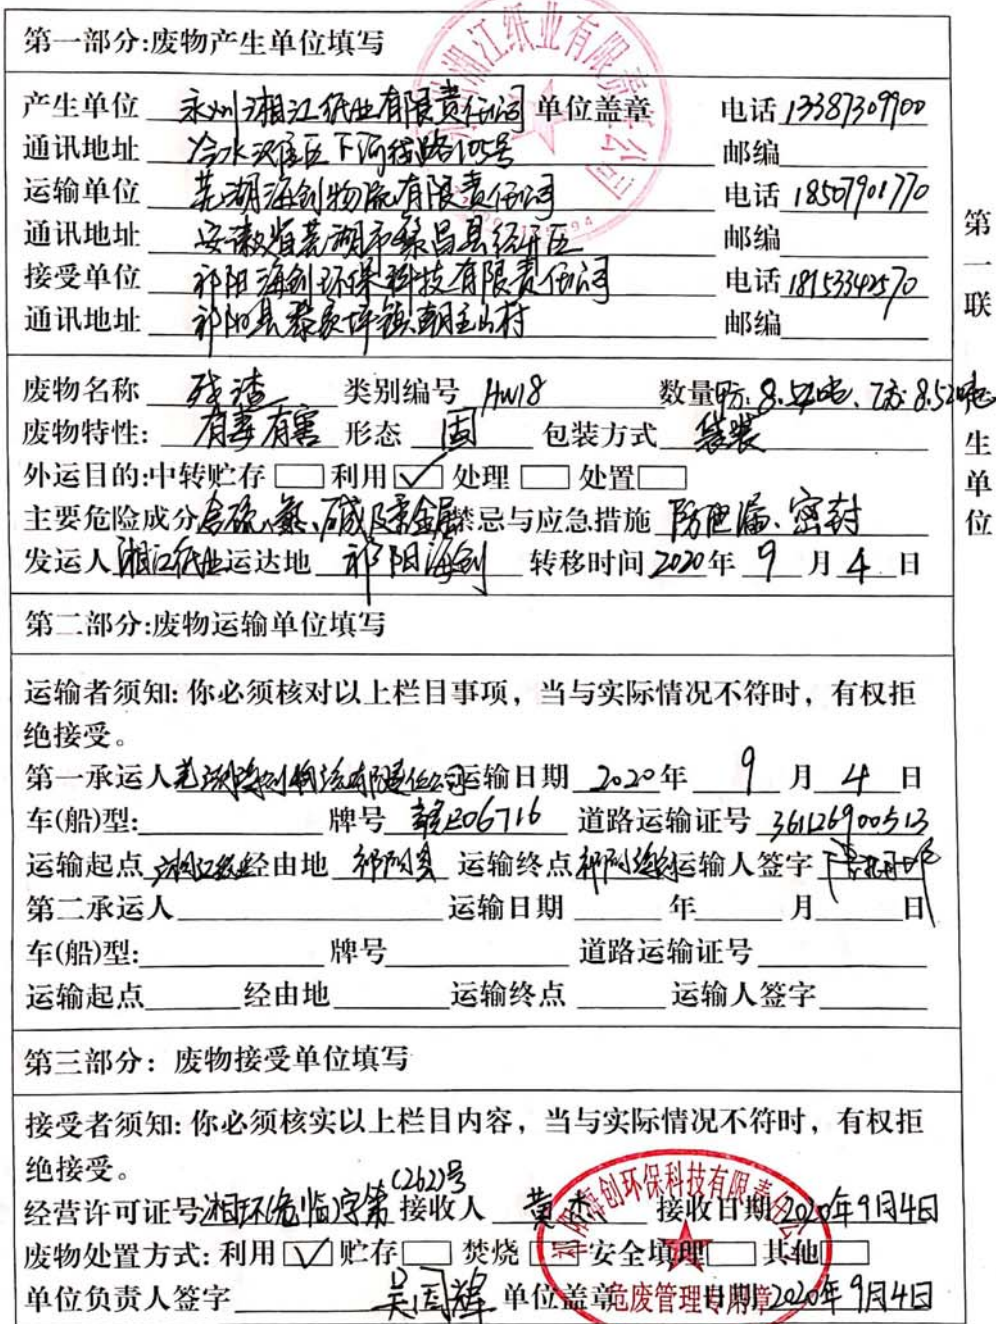 第一部分:废物产生单位填写
产生单位 永州湘江纸业有限责任公司 单位盖章 电话 13387309900
通讯地址 冷水滩区下河线路105号 邮编
运输单位 芜湖海创物流有限责任公司 电话 18507901770
通讯地址 安徽省芜湖市繁昌县经开区 邮编
接受单位 祁阳海创环保科技有限责任公司 电话 18153342570
通讯地址 祁阳县黎家坪镇朝主山村 邮编
废物名称 残渣 类别编号 HW18 数量 甲方:8.54吨、乙方:8.52吨
废物特性: 有毒有害 形态 固 包装方式 袋装
外运目的:中转贮存 利用 ✓ 处理 处置
主要危险成分 含硫、氯、碱及重金属 禁忌与应急措施 防泄漏、密封
发运人 湘江纸业 运达地 祁阳海创 转移时间 2020年 9 月 4 日
第二部分:废物运输单位填写
运输者须知: 你必须核对以上栏目事项，当与实际情况不符时，有权拒
绝接受。
第一承运人 芜湖海创物流有限责任公司 运输日期 2020年 9 月 4 日
车(船)型: 牌号 赣E06716 道路运输证号 361126900513
运输起点 湘江纸业 经由地 祁阳县 运输终点 祁阳海创 运输人签字
第二承运人 运输日期 年 月 日
车(船)型: 牌号 道路运输证号
运输起点 经由地 运输终点 运输人签字
第三部分：废物接受单位填写
接受者须知: 你必须核实以上栏目内容，当与实际情况不符时，有权拒
绝接受。
经营许可证号 湘环危临字第(262)号 接收人 黄杰 接收日期 2020年9月4日
废物处置方式: 利用 ✓ 贮存 焚烧 安全填理 其他
单位负责人签字 吴周辉 单位盖章 日期 2020年9月4日
祁阳海创环保科技有限责任公司
危废管理专用章
第一联
生单位